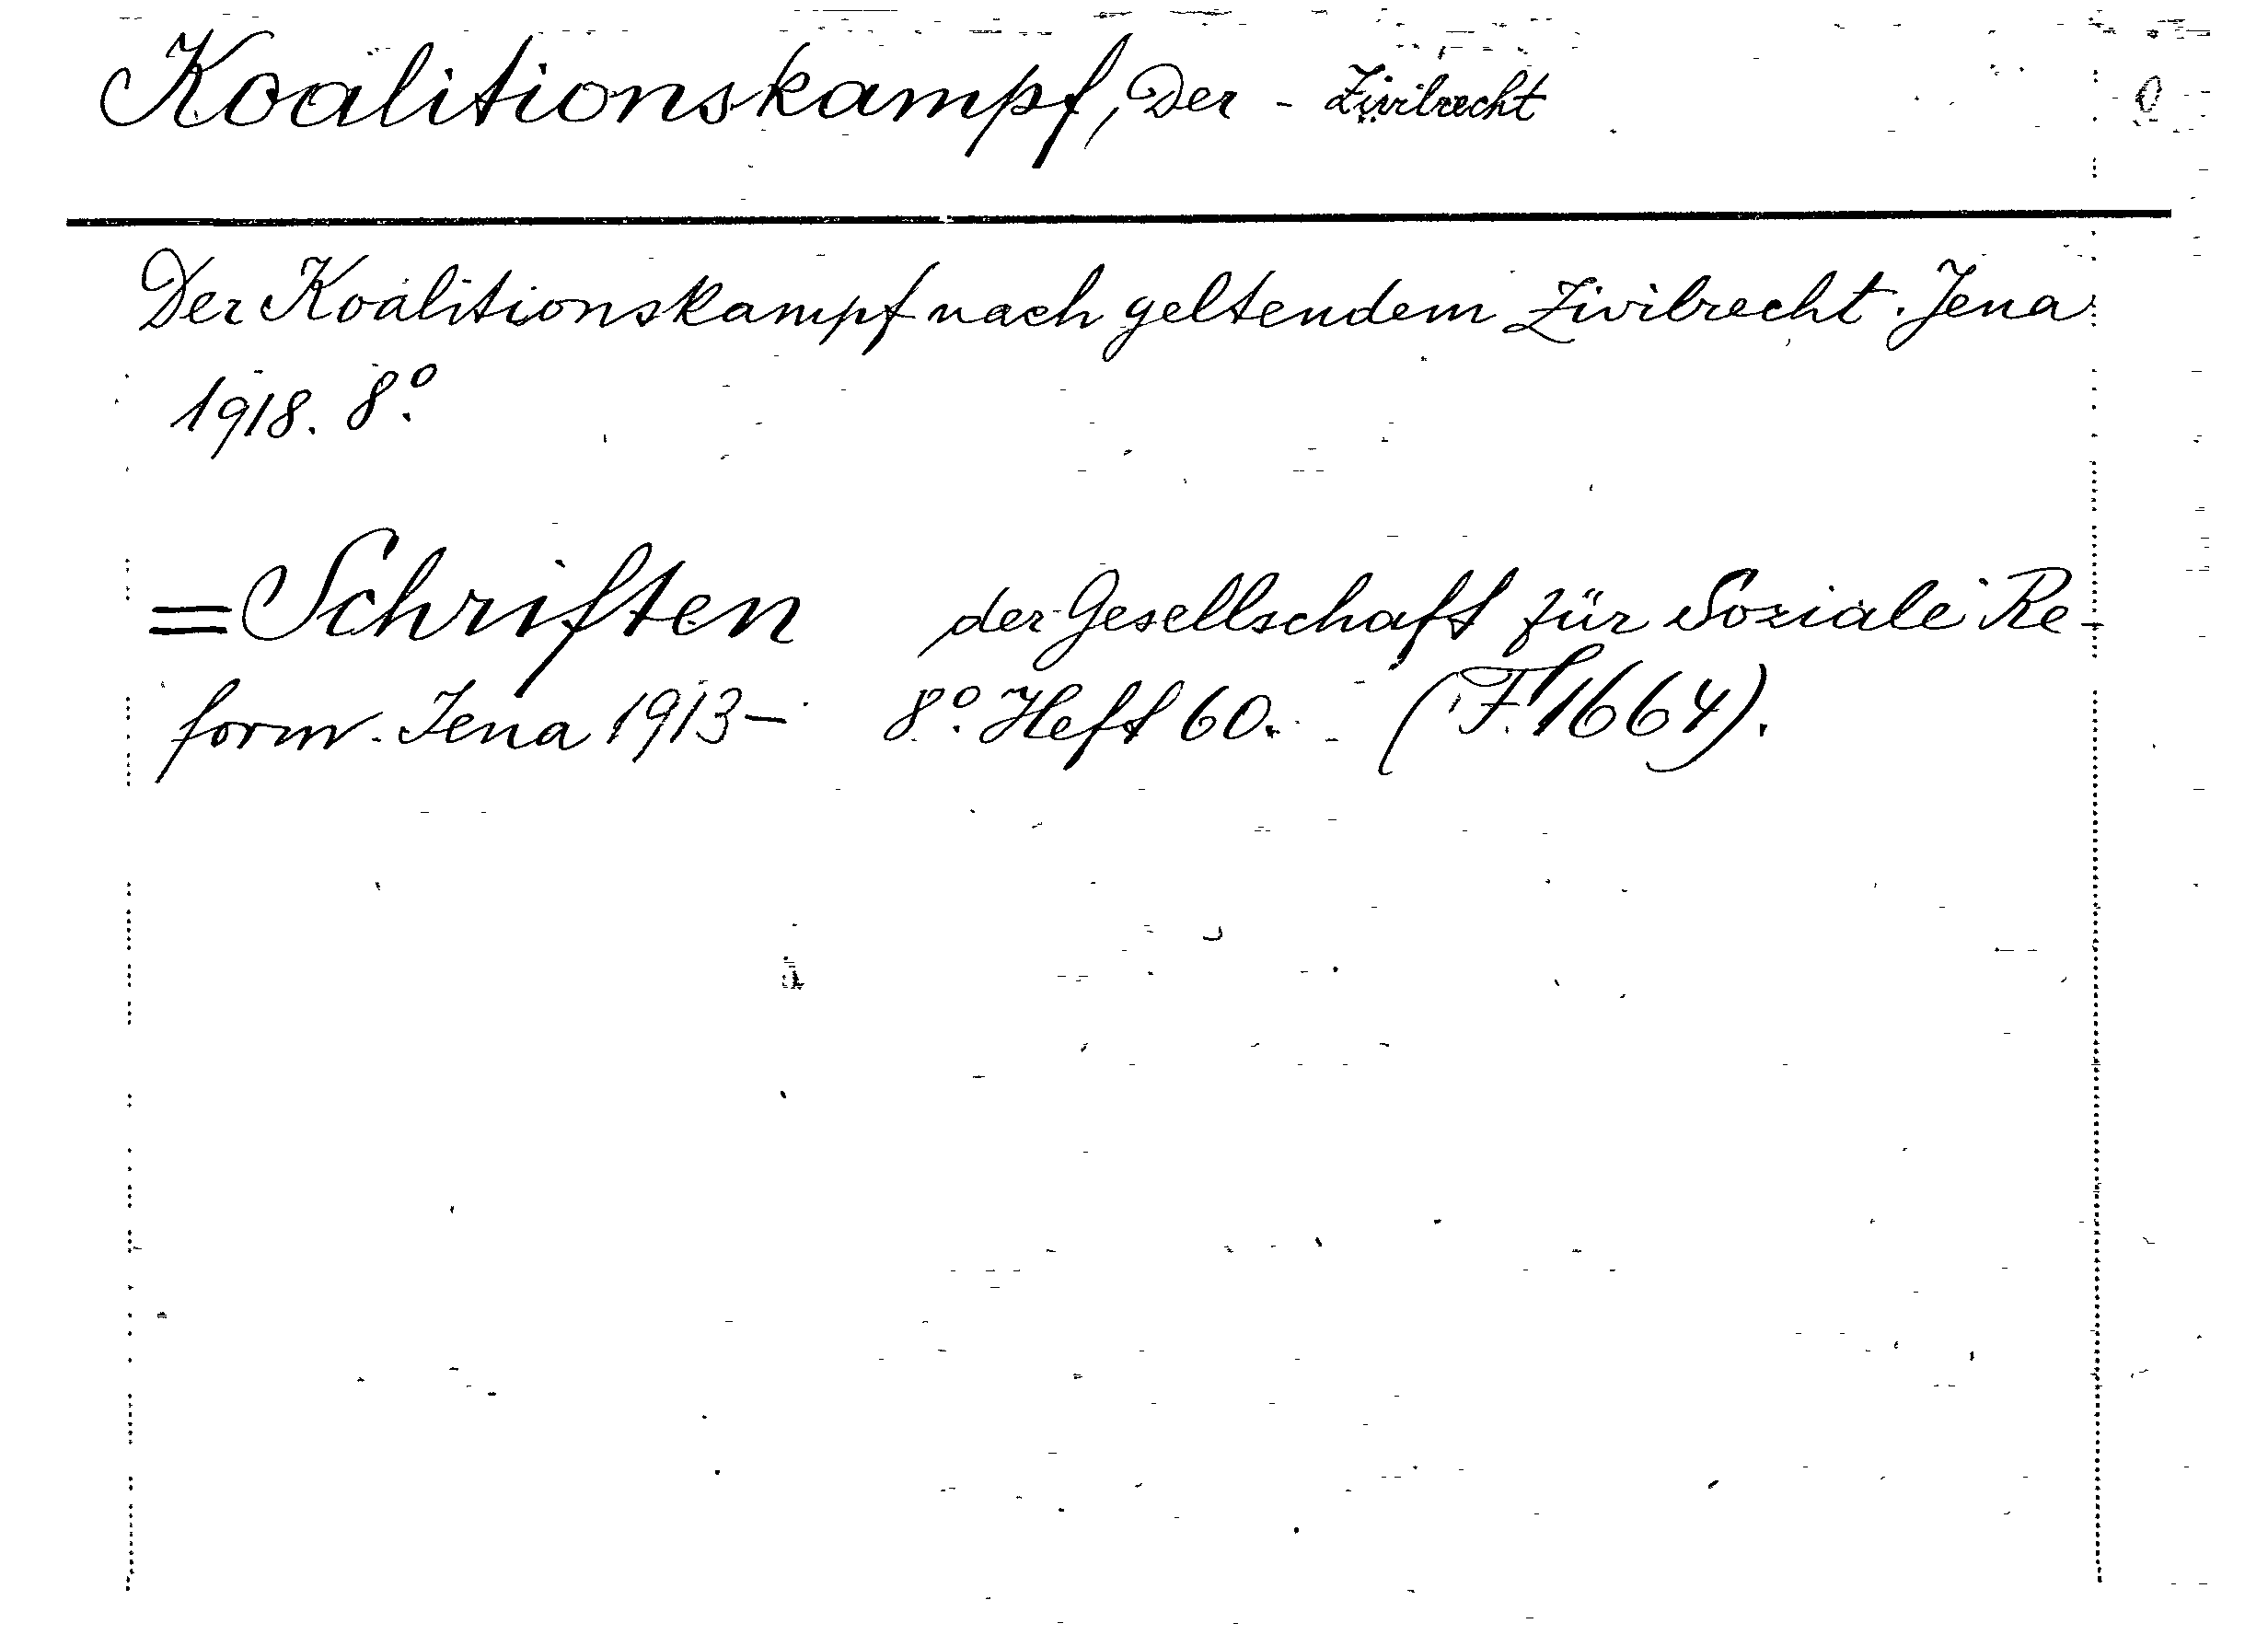 Koalitionskampf, Der - Zivilrecht
Der Koalitionskampf nach geltendem Zivilrecht. Jena
1918. 8°.
=Schriften der Gesellschaft für Soziale Re-
form. Jena 1913- 8°. Heft 60. (F. 1664).